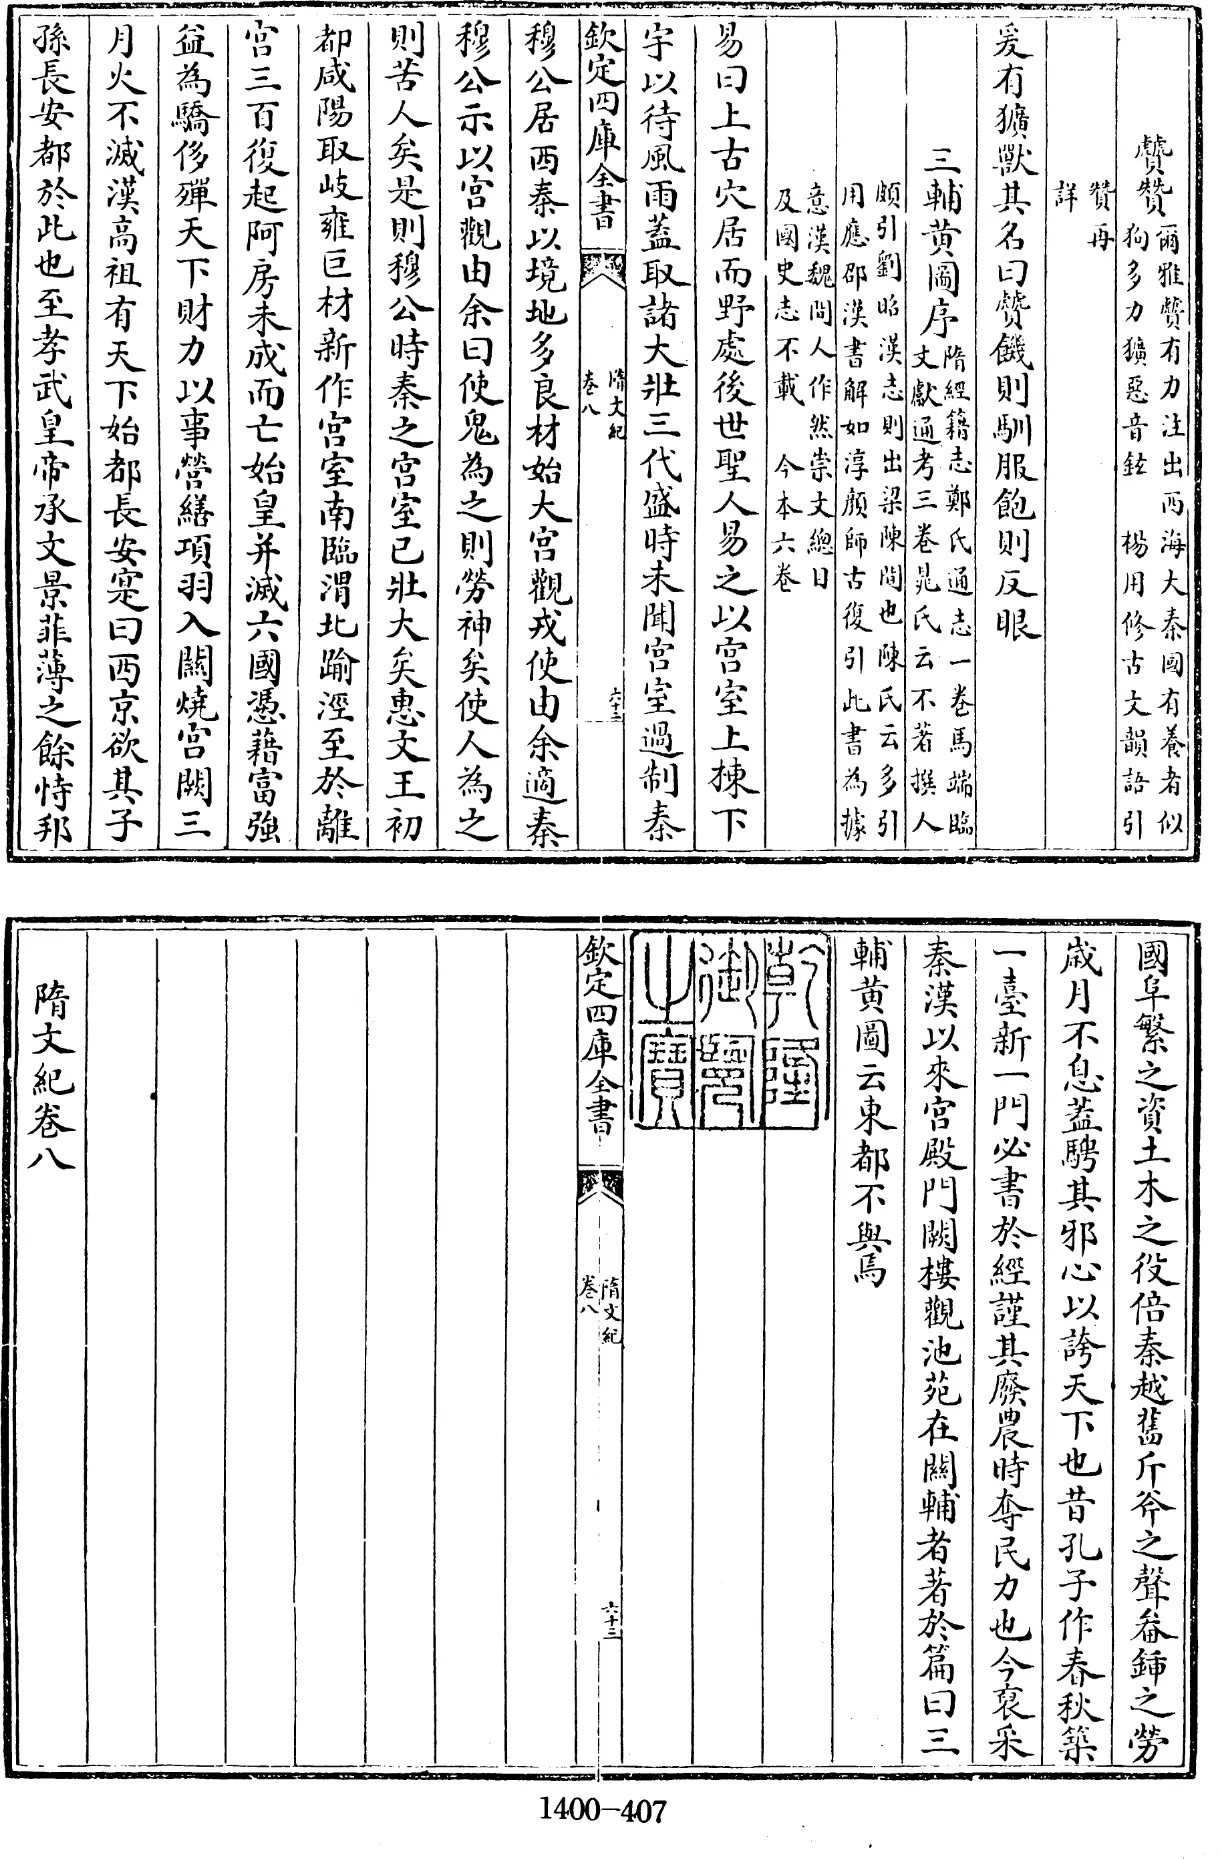 贙贊 爾雅贙有力注出西海大秦國有養者似
狗多力獷惡音鉉 楊用修古文韻語引
贊再
詳
爰有獷獸其名曰贙饑則馴服飽則反眼
三輔黄圖序 隋經籍志鄭氏通志一卷馬端臨
文獻通考三卷晁氏云不著撰人
頗引劉昭漢志則出梁陳間也陳氏云多引
用應邵漢書解如淳顔師古復引此書為據
意漢魏間人作然崇文總目
及國史志不載 今本六卷
易曰上古穴居而野處後世聖人易之以宫室上棟下
宇以待風雨蓋取諸大壯三代盛時未聞宫室過制秦
欽定四庫全書
隋文紀
卷八
穆公居西秦以境地多良材始大宫觀戎使由余適秦
穆公示以宫觀由余曰使鬼為之則勞神矣使人為之
則苦人矣是則穆公時秦之宫室已壯大矣惠文王初
都咸陽取岐雍巨材新作宫室南臨渭北踰涇至於離
宫三百復起阿房未成而亡始皇并滅六國憑藉富強
益為驕侈殫天下財力以事營繕項羽入關燒宫闕三
月火不滅漢高祖有天下始都長安寔曰西京欲其子
孫長安都於此也至孝武皇帝承文景菲薄之餘恃邦
國阜繁之資土木之役倍秦越舊斤斧之聲畚鍤之勞
歳月不息蓋騁其邪心以誇天下也昔孔子作春秋築
一臺新一門必書於經謹其廢農時奪民力也今裒采
秦漢以來宫殿門闕樓觀池苑在關輔者著於篇曰三
輔黄圖云東都不與焉
乾隆
御覽
之寶
欽定四庫全書
隋文紀
卷八
六十三
隋文紀卷八
1400-407